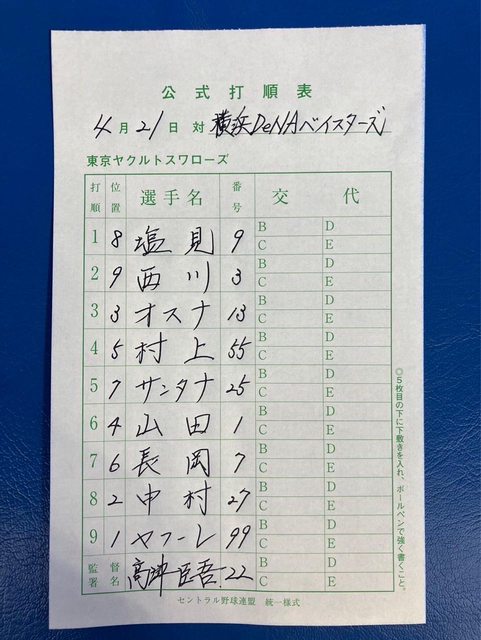 公式打順表
4月21日 対 横浜DeNAベイスターズ
東京ヤクルトスワローズ
打順 位置 選手名 番号 交代
1 8 塩見 9 B D C E
2 9 西川 3 B D C E
3 3 オスナ 13 B D C E
4 5 村上 55 B D C E
5 7 サンタナ 25 B D C E
6 4 山田 1 B D C E
7 6 長岡 7 B D C E
8 2 中村 27 B D C E
9 1 ヤフーレ 99 B D C E
監督署名 高津臣吾 22 B D C E
セントラル野球連盟 統一様式
◎5枚目の下に下敷きを入れ、ボールペンで強く書くこと。